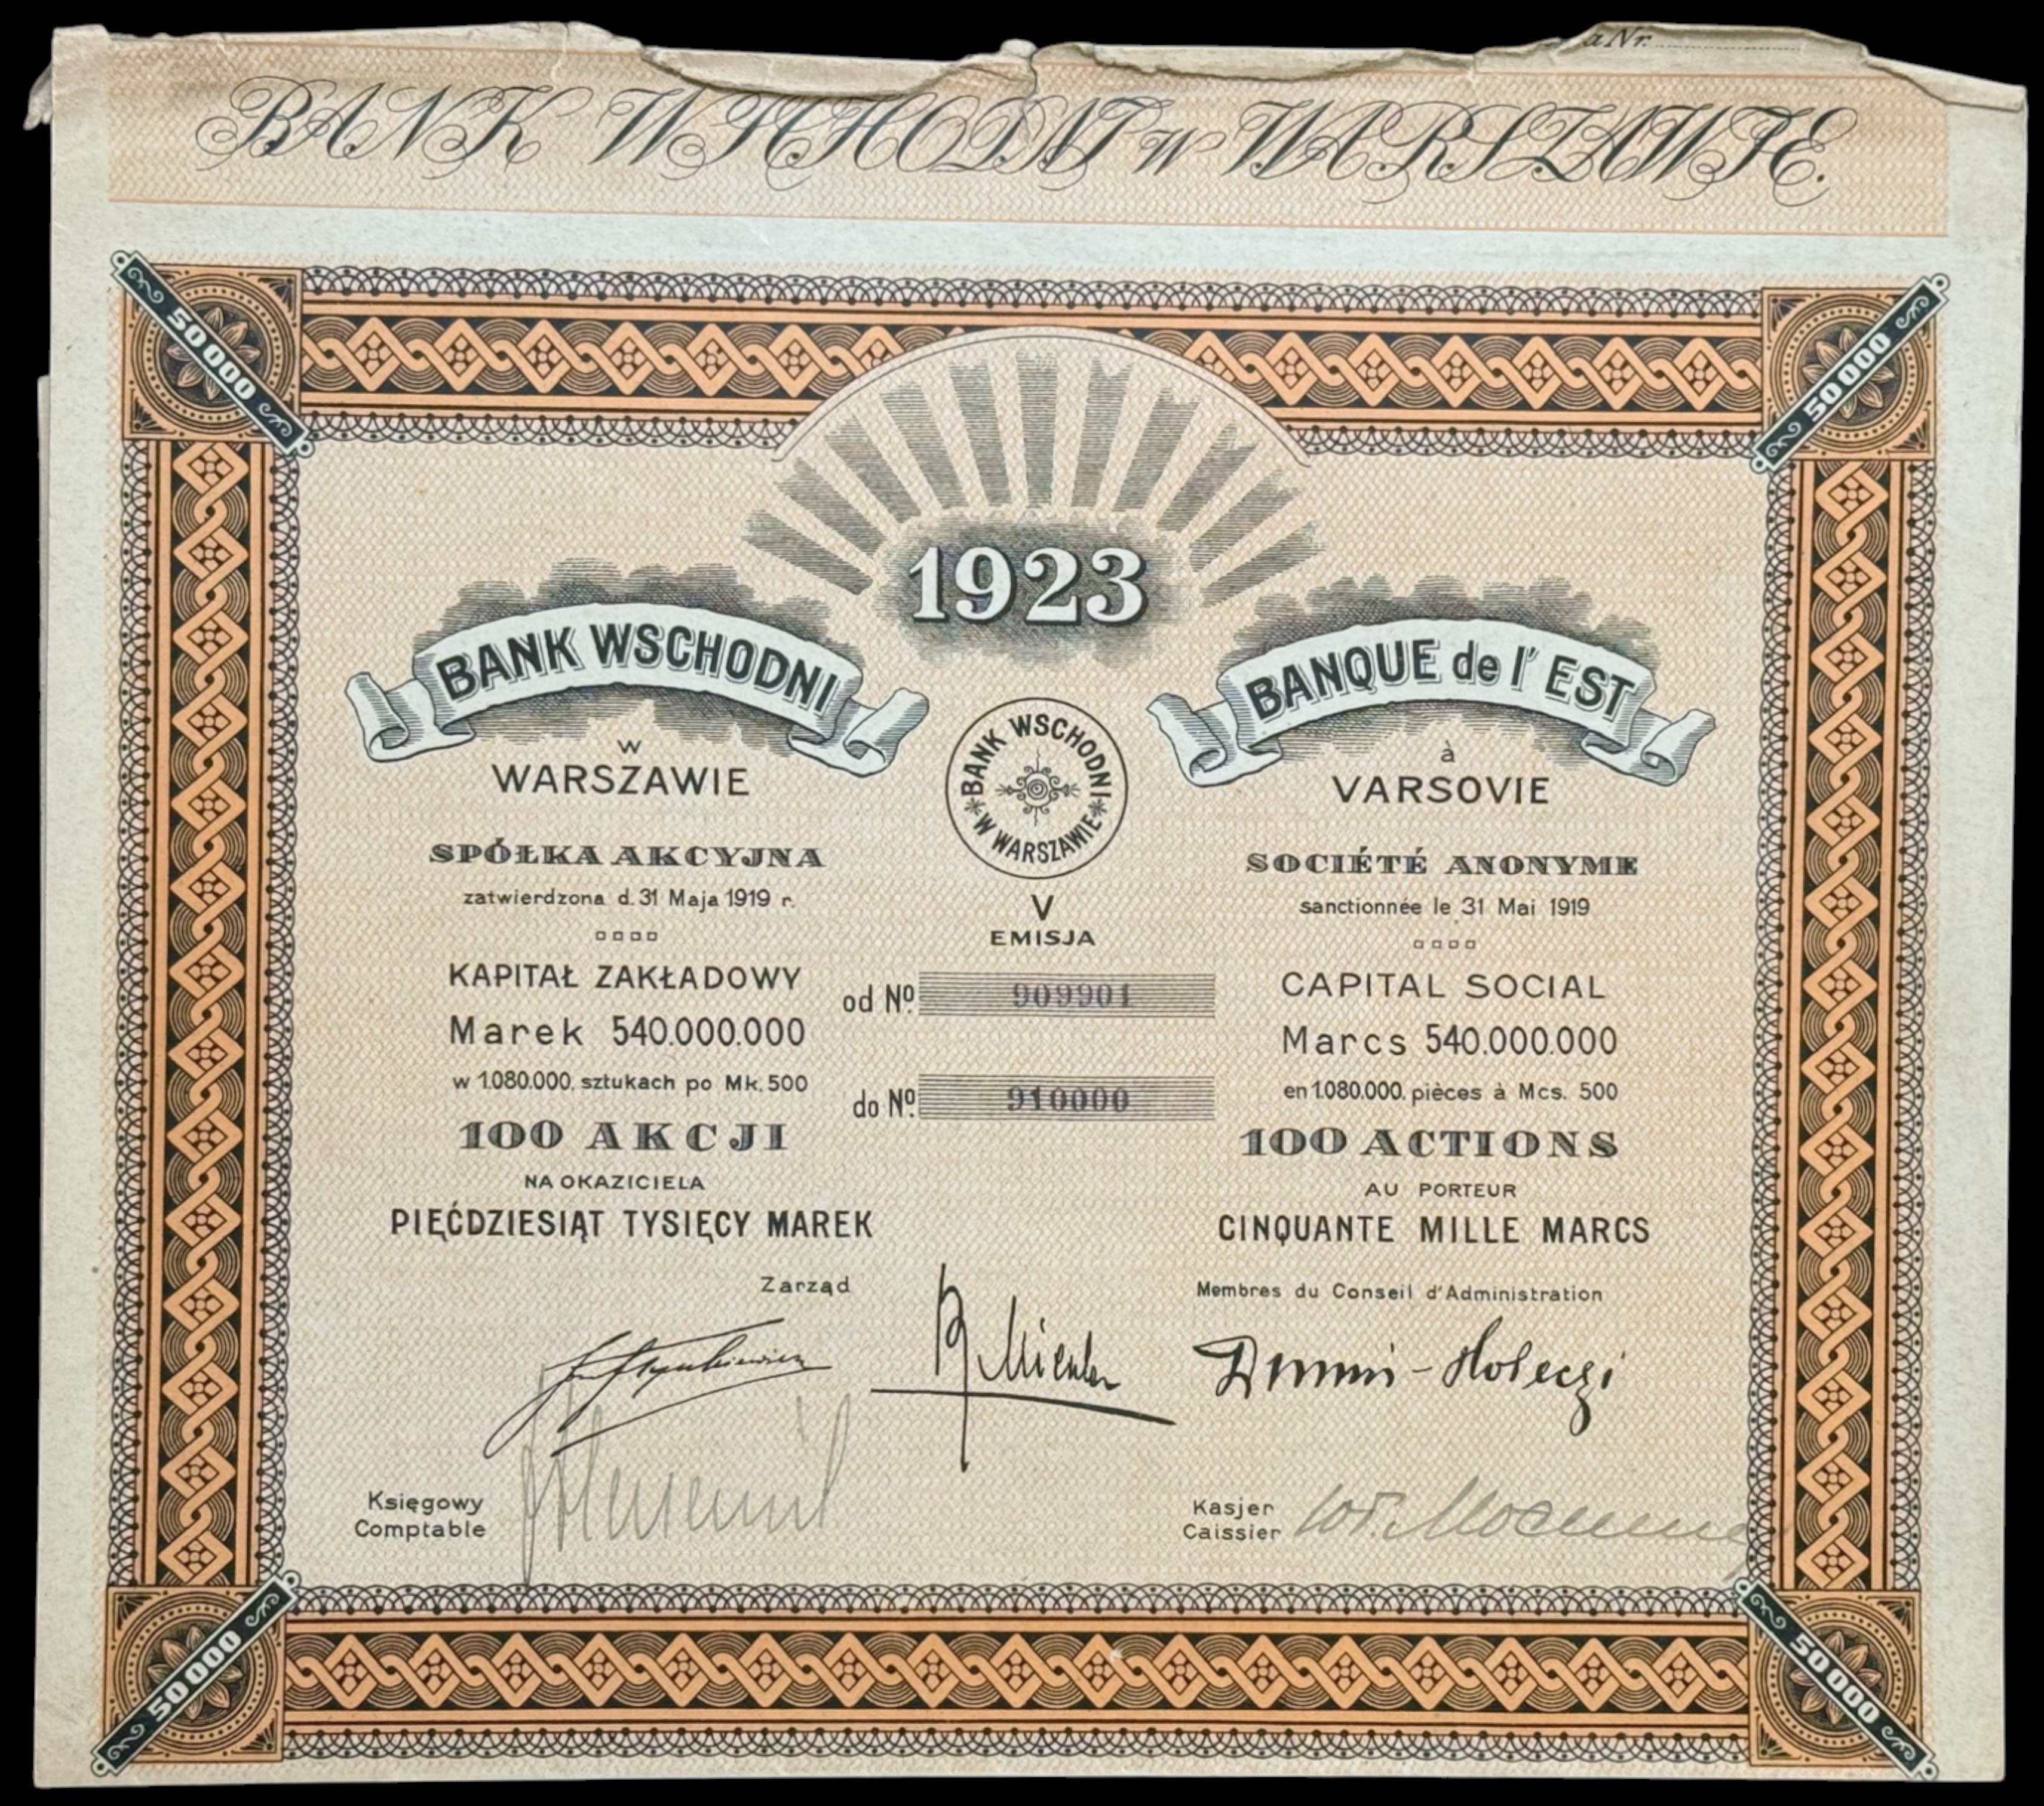 a Nr.
BANK WSCHODNI w WARSZAWIE.
50000
50000
1923
BANK WSCHODNI
w
WARSZAWIE
SPÓŁKA AKCYJNA
zatwierdzona d. 31 Maja 1919 r.
KAPITAŁ ZAKŁADOWY
Marek 540.000.000
w 1.080.000. sztukach po Mk. 500
100 AKCJI
NA OKAZICIELA
PIĘĆDZIESIĄT TYSIĘCY MAREK
BANK WSCHODNI
W WARSZAWIE
V
EMISJA
od Nº. 909901
do Nº. 910000
BANQUE de l' EST
à
VARSOVIE
SOCIÉTÉ ANONYME
sanctionnée le 31 Mai 1919
CAPITAL SOCIAL
Marcs 540.000.000
en 1.080.000. pièces à Mcs. 500
100 ACTIONS
AU PORTEUR
CINQUANTE MILLE MARCS
Zarząd
Membres du Conseil d'Administration
Księgowy
Comptable
Kasjer
Caissier
50000
50000